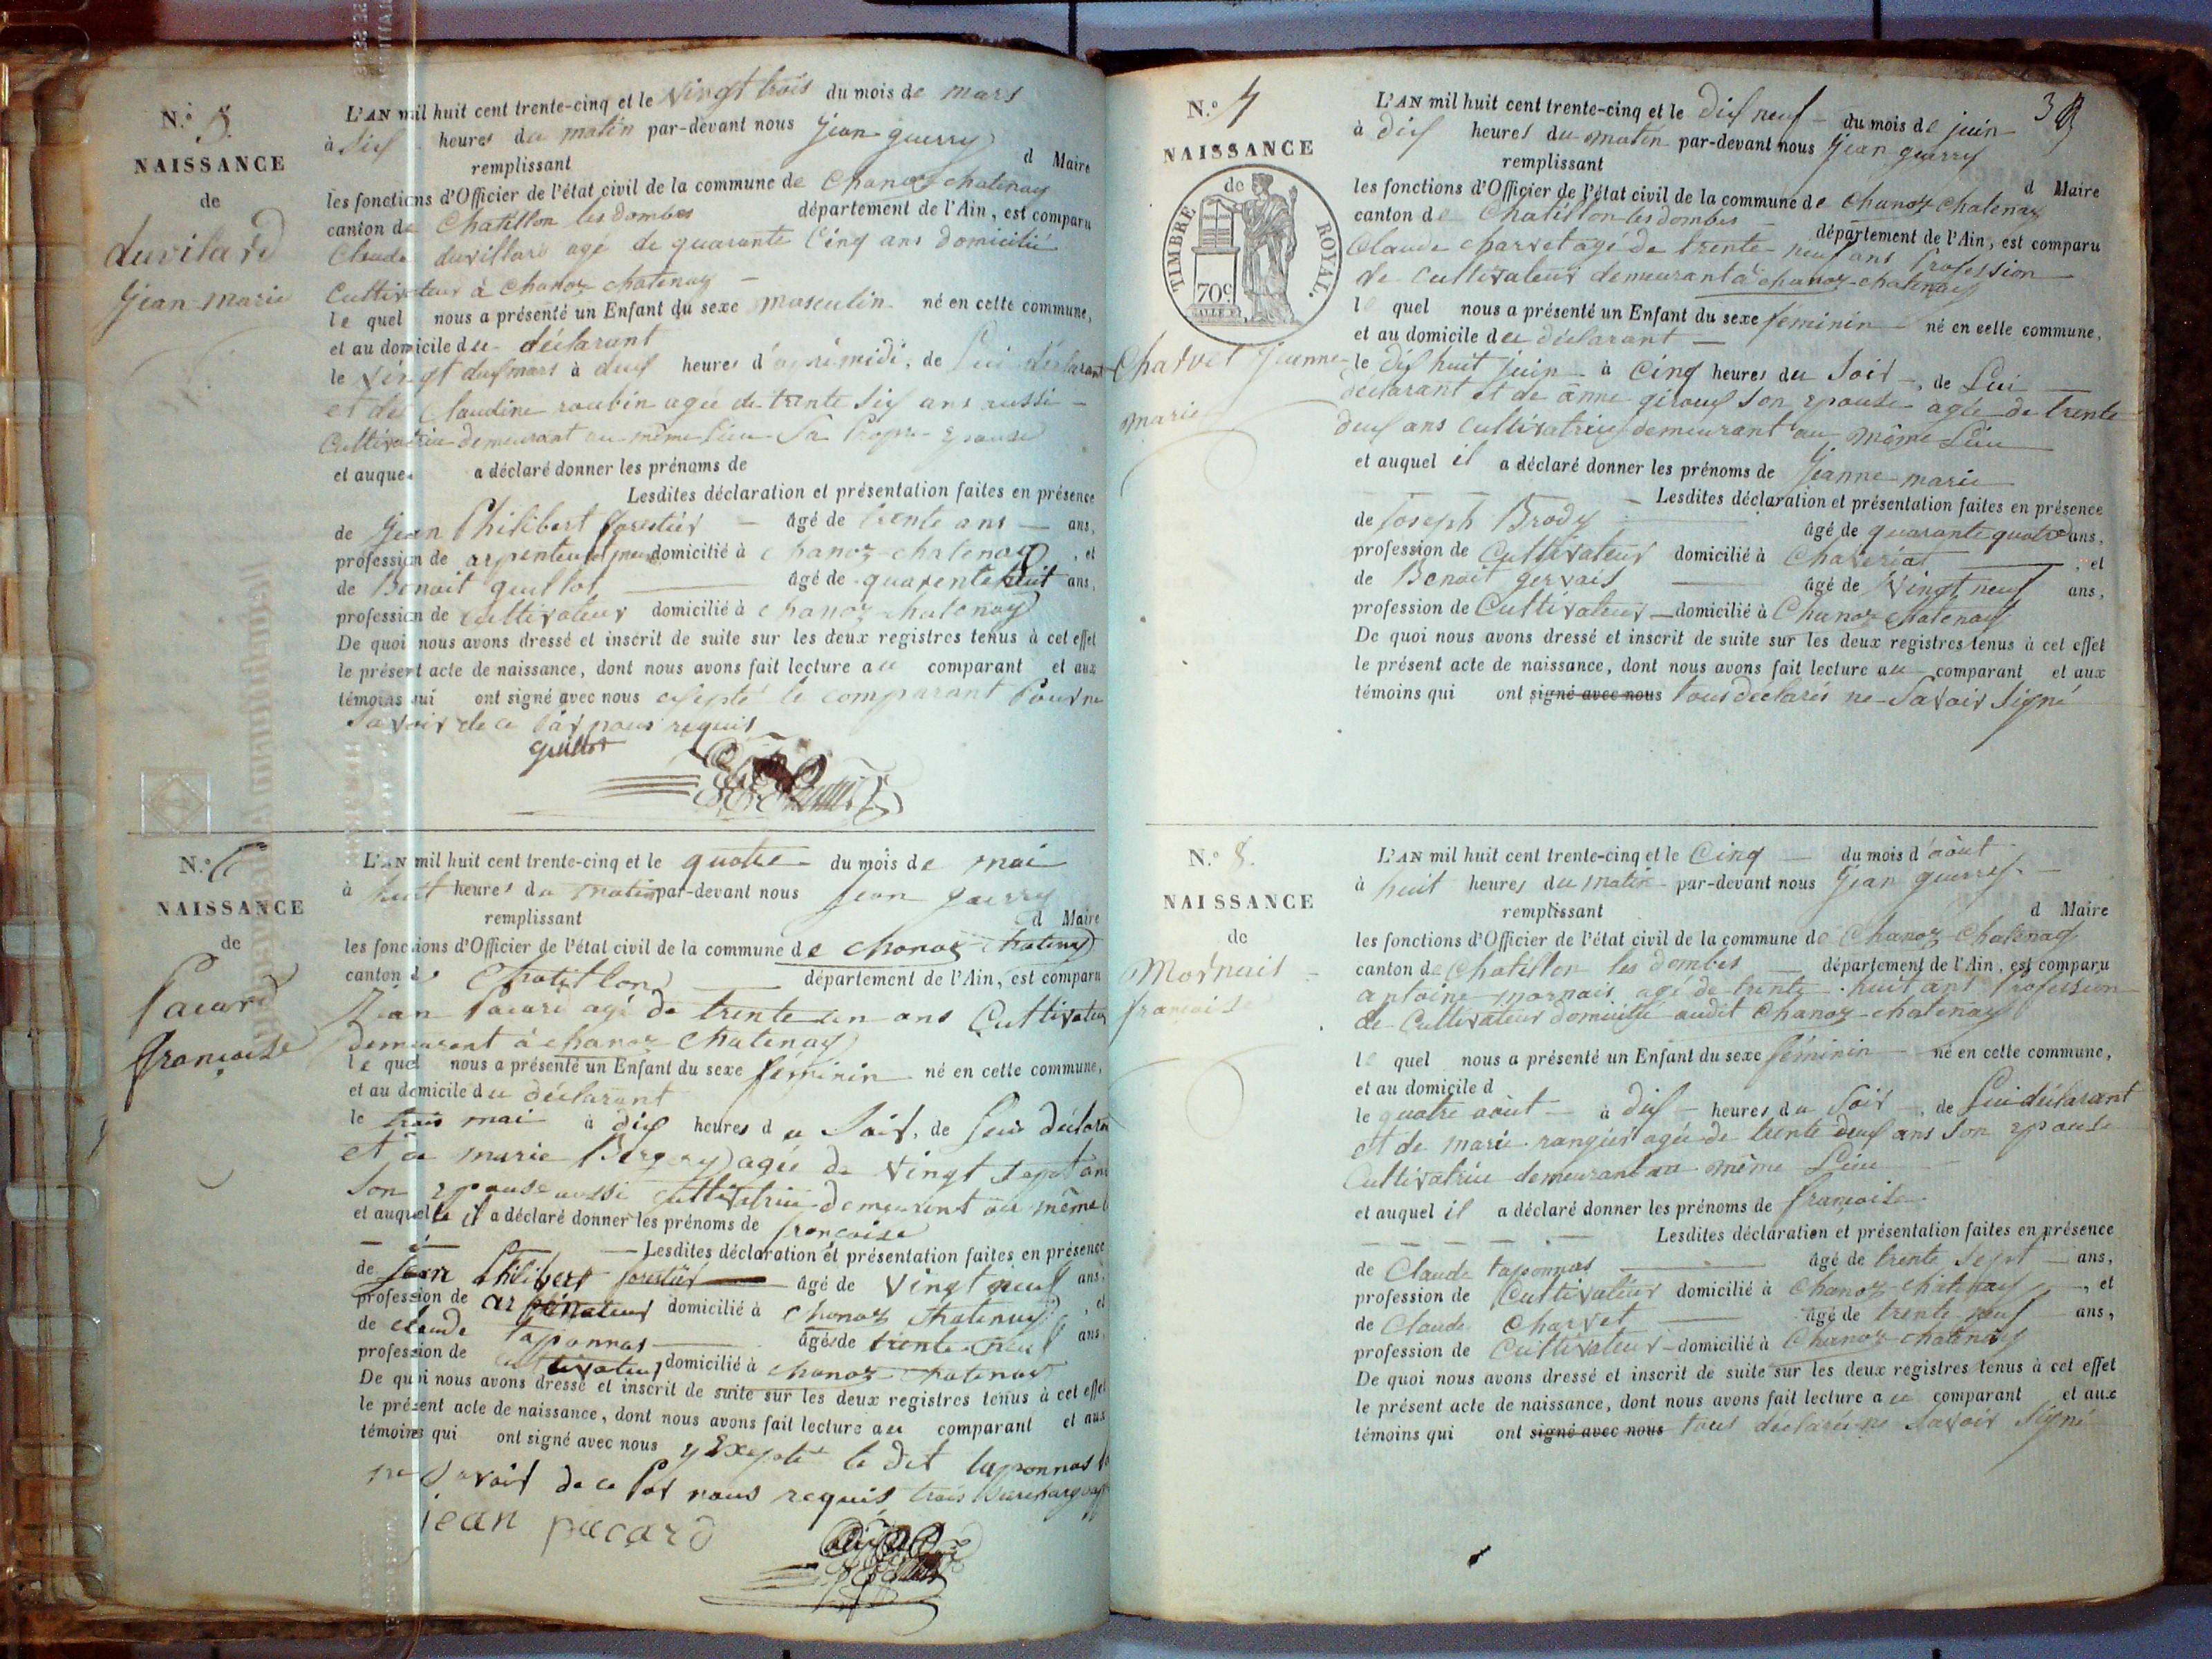 N.° 5.
NAISSANCE
de
duvilard
jean marie
L'AN mil huit cent trente-cinq et le vingt trois du mois de mars
à dix heures du matin par-devant nous jean guerry
remplissant d Maire
les fonctions d'Officier de l'état civil de la commune de chanoz chatenay
canton de Chatillon les dombes département de l'Ain, est comparu
Claude duvillard agé de quarante cinq ans domicilié
Cultivateur à chanoz chatenay
le quel nous a présenté un Enfant du sexe masculin né en cette commune,
et au domicile du déclarant
le vingt deux mars à deux heures d'après midi, de Lui déclarant
et de Claudine roubin agée de trente six ans aussi
Cultivatrice demeurant au même lieu Sa Propre epouse
et auquel a déclaré donner les prénoms de
Lesdites déclaration et présentation faites en présence
de jean Philibert forestier âgé de trente ans ans,
profession de arpenteur domicilié à chanoz-chatenay, et
de Benoit guillot âgé de quarente huit ans,
profession de cultivateur domicilié à chanoz chatenay
De quoi nous avons dressé et inscrit de suite sur les deux registres tenus à cet effet
le présent acte de naissance, dont nous avons fait lecture au comparant et aux
témoins qui ont signé avec nous excepté le comparant Pour ne
Savoir de ce Par nous requis
guillot
N.° 6
NAISSANCE
de
Pacard
françoise
L'AN mil huit cent trente-cinq et le quatre du mois de mai
à huit heures du matin par-devant nous jean guerry
remplissant d Maire
les fonctions d'Officier de l'état civil de la commune de chanoz chatenay
canton de Chatillon département de l'Ain, est comparu
Jean Pacard agé de trente un ans Cultivateur
demeurant à chanoz chatenay
le quel nous a présenté un Enfant du sexe féminin né en cette commune,
et au domicile du déclarant
le trois mai à dix heures du Soir, de Lui déclarant
et de marie Bergery agée de vingt sept ans
Son epouse aussi Cultivatrice demeurant au même
et auquelle il a déclaré donner les prénoms de françoise
Lesdites déclaration et présentation faites en présence
de jean Philibert forestier âgé de vingt neuf ans,
profession de arpenteur domicilié à chanoz chatenay, et
de claude taponnas âgé de trente neuf ans,
profession de cultivateur domicilié à chanoz chatenay
De quoi nous avons dressé et inscrit de suite sur les deux registres tenus à cet effet
le présent acte de naissance, dont nous avons fait lecture au comparant et aux
témoins qui ont signé avec nous Excepté le dit taponnas
ne Savoir de ce Par nous requis trois
jean pacard
N.° 7
NAISSANCE
de
TIMBRE ROYAL.
70c
Charvet jeanne
marie
3
L'AN mil huit cent trente-cinq et le dix neuf du mois de juin
à dix heures du matin par-devant nous jean guerry
remplissant d Maire
les fonctions d'Officier de l'état civil de la commune de chanoz-chatenay
canton de Chatillon les dombes département de l'Ain, est comparu
Claude charvet agé de trente neuf ans Profession
de cultivateur demeurant à chanoz-chatenay
le quel nous a présenté un Enfant du sexe feminin né en cette commune,
et au domicile du déclarant
le dix huit juin à Cinq heures du Soir, de Lui
déclarant et de anne giroud son epouse agée de trente
deux ans cultivatrice demeurant au même Lieu
et auquel il a déclaré donner les prénoms de jeanne marie
Lesdites déclaration et présentation faites en présence
de joseph Brody âgé de quarante quatre ans,
profession de Cultivateur domicilié à Chaveriat, et
de Benoit gervais âgé de vingt neuf ans,
profession de Cultivateur domicilié à Chanoz chatenay
De quoi nous avons dressé et inscrit de suite sur les deux registres tenus à cet effet
le présent acte de naissance, dont nous avons fait lecture au comparant et aux
témoins qui ont signé avec nous tous déclarés ne Savoir Signé
N.° 8.
NAISSANCE
de
Mornais
françoise
L'AN mil huit cent trente-cinq et le Cinq du mois d'août
à huit heures du matin par-devant nous jean guerry
remplissant d Maire
les fonctions d'Officier de l'état civil de la commune de Chanoz-chatenay
canton de Chatillon les dombes département de l'Ain, est comparu
antoine mornais agé de trente huit ans Profession
de Cultivateur domicilié audit Chanoz-chatenay
le quel nous a présenté un Enfant du sexe féminin né en cette commune,
et au domicile d
le quatre août à dix heures du Soir, de Lui déclarant
et de marie rangier agée de trente deux ans son epouse
Cultivatrice demeurant au même Lieu
et auquel il a déclaré donner les prénoms de françoise
Lesdites déclaration et présentation faites en présence
de Claude taponnas âgé de trente sept ans,
profession de Cultivateur domicilié à Chanoz-chatenay, et
de Claude charvet âgé de trente neuf ans,
profession de Cultivateur domicilié à Chanoz chatenay
De quoi nous avons dressé et inscrit de suite sur les deux registres tenus à cet effet
le présent acte de naissance, dont nous avons fait lecture au comparant et aux
témoins qui ont signé avec nous tous déclarés ne Savoir Signé